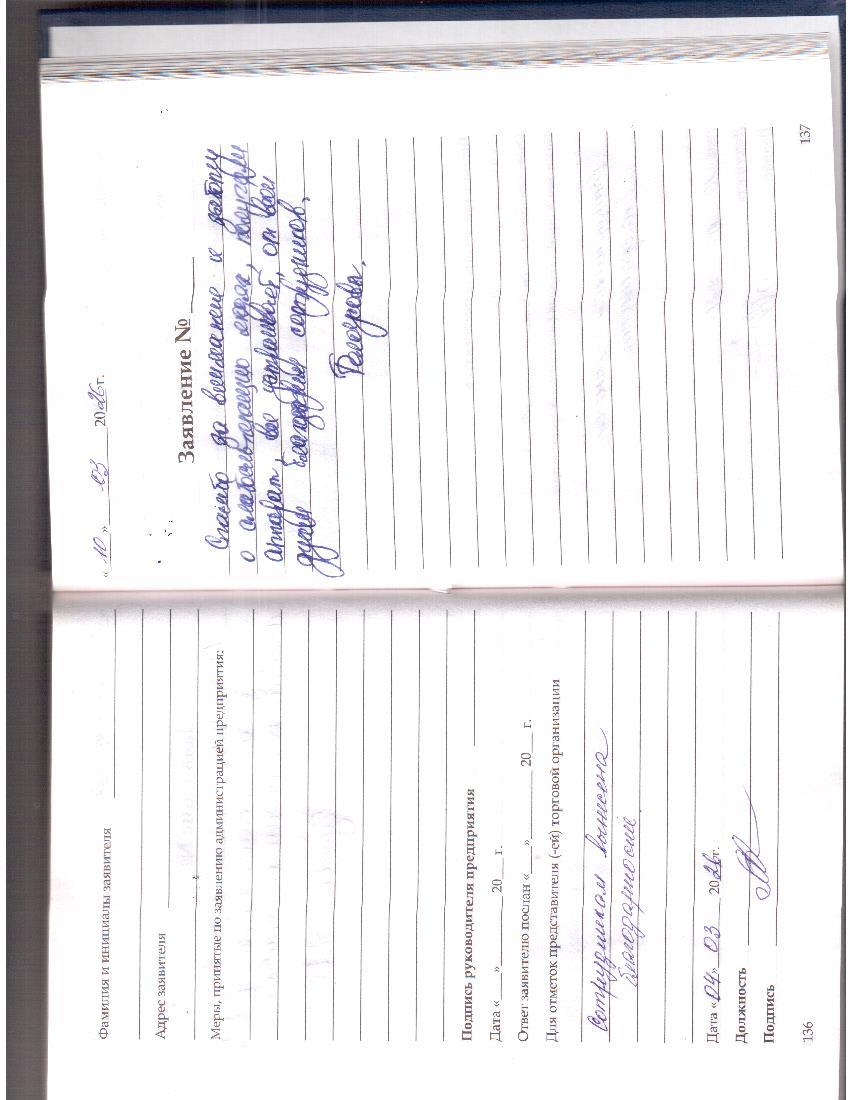 Фамилия и инициалы заявителя
Адрес заявителя
Меры, принятые по заявлению администрацией предприятия:
Подпись руководителя предприятия
Дата «___»________ 20___ г.
Ответ заявителю послан «___»________ 20___ г.
Для отметок представителя (-ей) торговой организации
Сотрудникам вынесена
благодарность.
Дата «04» 03 2026г.
Должность
Подпись
136
« 10 » 03 2026г.
Заявление № ____
Спасибо за внимание и заботу
о слабовидящих
аппарат, все устраивает, от всей
души благодарю сотрудников,
137